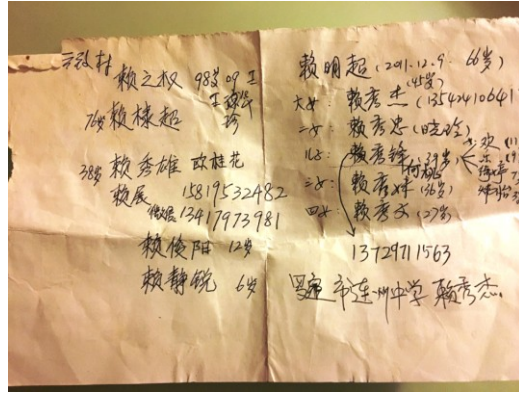 赖之权 98岁 09
76岁 赖様超
38岁 赖秀雄 欧桂花
赖展 15819532482
13417973981
赖俊阳 12岁
赖静锐 6岁
赖明超 (2011.12.9. 66岁)
(45岁)
大女: 赖秀杰 (13542410641
二女: 赖秀忠
儿子: 赖秀锋 (39岁)
赖秀妹 (36岁)
四女: 赖秀文 (27岁)
13729711563
市连州中学 赖秀杰